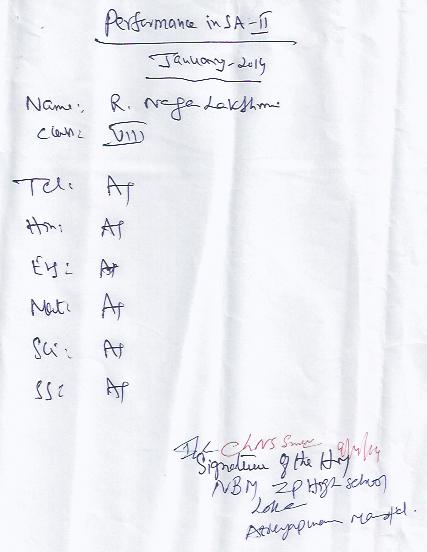 Performance in SA-II
January-2014
Name: R. Naga Lakshmi
Class: VIII
Tel: A+
Hin: A+
Eng: A+
Mat: A+
Sci: A+
SS: A+
Signature of the HM
NBM ZP High School
Atreyapuram Mandal.